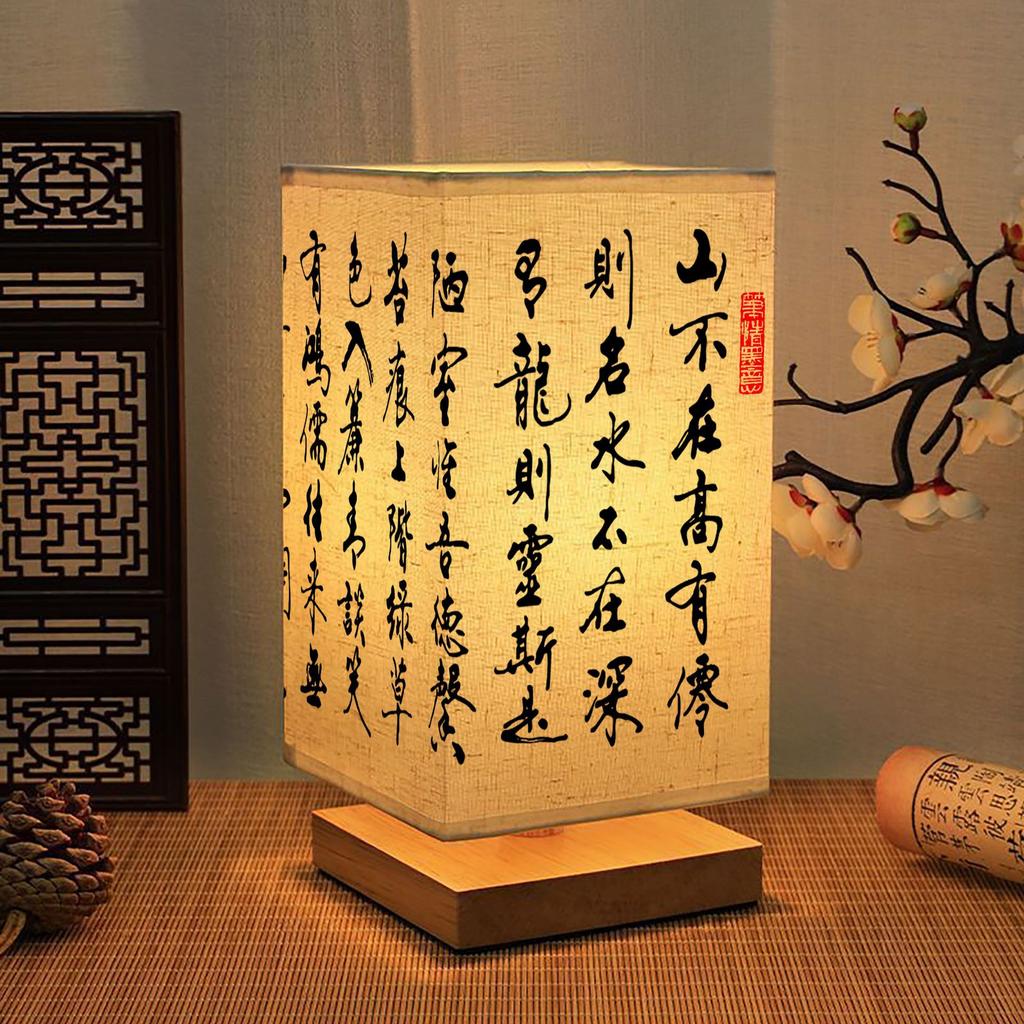 筆情墨意
山不在高有僊
則名水不在深
有龍則靈斯是
陋室惟吾德馨
苔痕上階綠草
色入簾青談笑
有鴻儒往来無